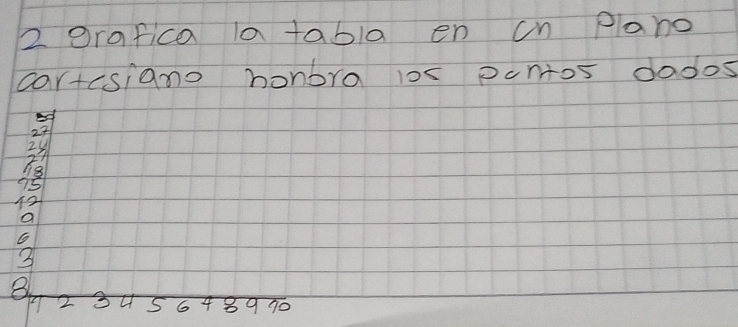 2 grafica la tabla en cn plano
cartesiano nonbra los pcntos dados
27
24
21
18
15
12
9
6
3
0
1 2 3 4 5 6 7 8 9 10